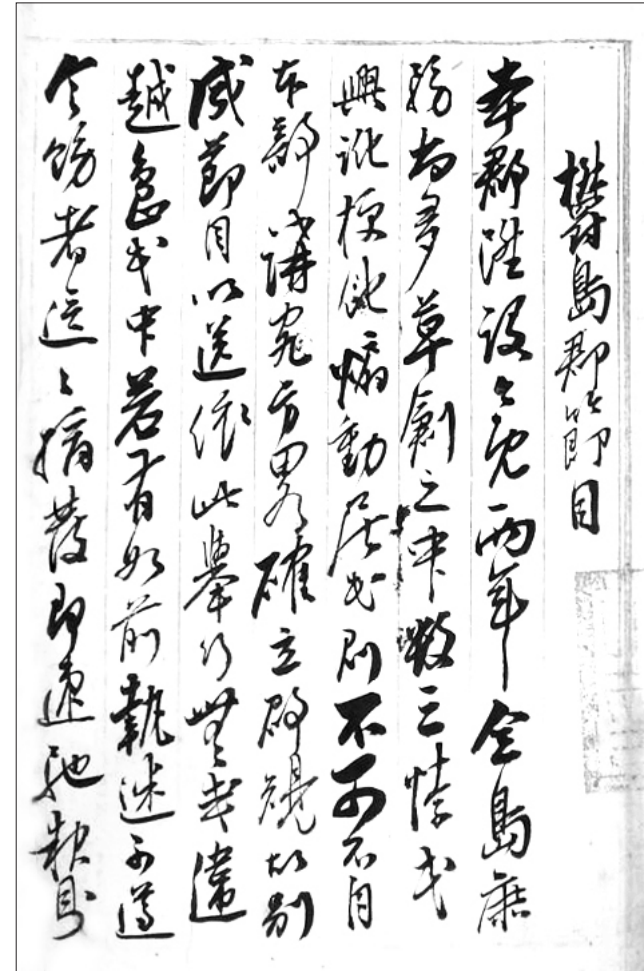 欝島郡節目
本郡陞設今旣兩年全島庶
務尙多草創之中數三悖民
興訛梗化煽動居民則不可不自
本部講究方畧確立郡規故別
成節目以送依此擧行無或違
越民中若有如前執迷不遵
令飭者這〻摘發即速馳報